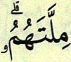 مِلَّتَهُمُۥۗ